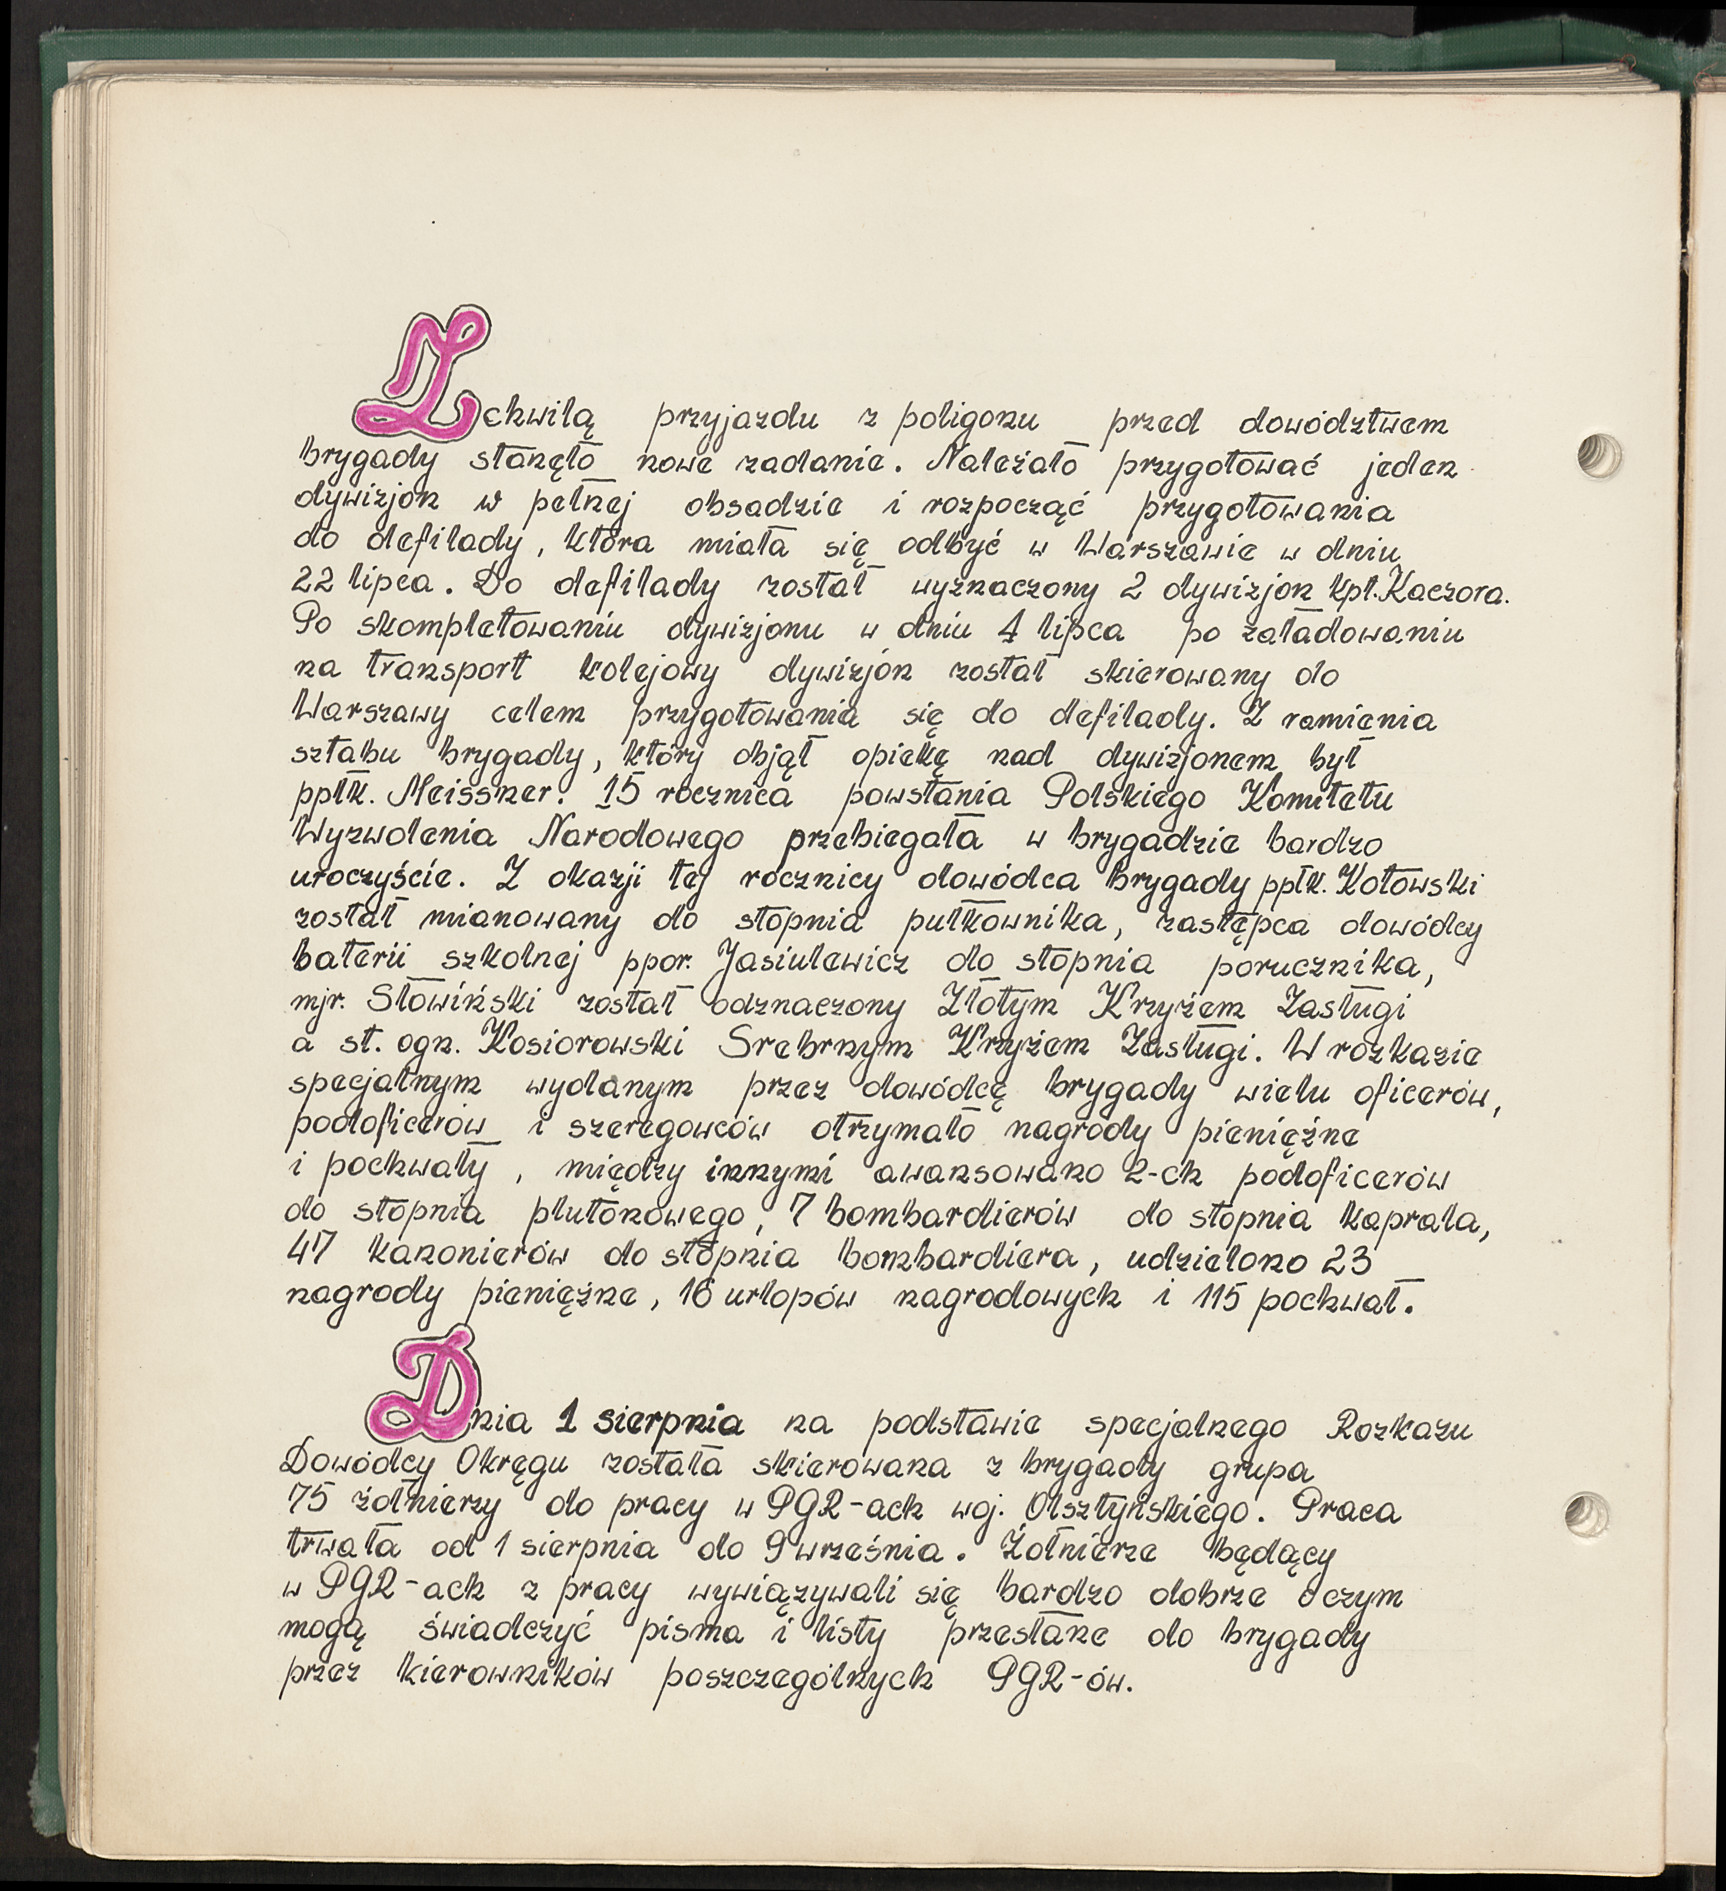 Z chwilą przyjazdu z poligonu przed dowództwem
brygady stanęło nowe zadanie. Należało przygotować jeden
dywizjon w pełnej obsadzie i rozpocząć przygotowania
do defilady, która miała się odbyć w Warszawie w dniu
22 lipca. Do defilady został wyznaczony 2 dywizjon kpt. Kaczora.
Po skompletowaniu dywizjonu w dniu 4 lipca po załadowaniu
na transport kolejowy dywizjon został skierowany do
Warszawy celem przygotowania się do defilady. Z ramienia
sztabu brygady, który objął opiekę nad dywizjonem był
ppłk. Meissner. 15 rocznica powstania Polskiego Komitetu
Wyzwolenia Narodowego przebiegała w brygadzie bardzo
uroczyście. Z okazji tej rocznicy dowódca brygady ppłk. Kotowski
został mianowany do stopnia pułkownika, zastępca dowódcy
baterii szkolnej ppor. Jasiulewicz do stopnia porucznika,
mjr. Słowiński został odznaczony Złotym Krzyżem Zasługi
a st. ogn. Kosiorowski Srebrnym Krzyżem Zasługi. W rozkazie
specjalnym wydanym przez dowódcę brygady wielu oficerów,
podoficerów i szeregowców otrzymało nagrody pieniężne
i pochwały, między innymi awansowano 2-ch podoficerów
do stopnia plutonowego, 7 bombardierów do stopnia kaprala,
47 kanonierów do stopnia bombardiera, udzielono 23
nagrody pieniężne, 16 urlopów nagrodowych i 115 pochwał.
Dnia 1 sierpnia na podstawie specjalnego Rozkazu
Dowódcy Okręgu została skierowana z brygady grupa
75 żołnierzy do pracy w PGR-ach woj. Olsztyńskiego. Praca
trwała od 1 sierpnia do 9 września. Żołnierze będący
w PGR-ach z pracy wywiązywali się bardzo dobrze o czym
mogą świadczyć pisma i listy przesłane do brygady
przez kierowników poszczególnych PGR-ów.